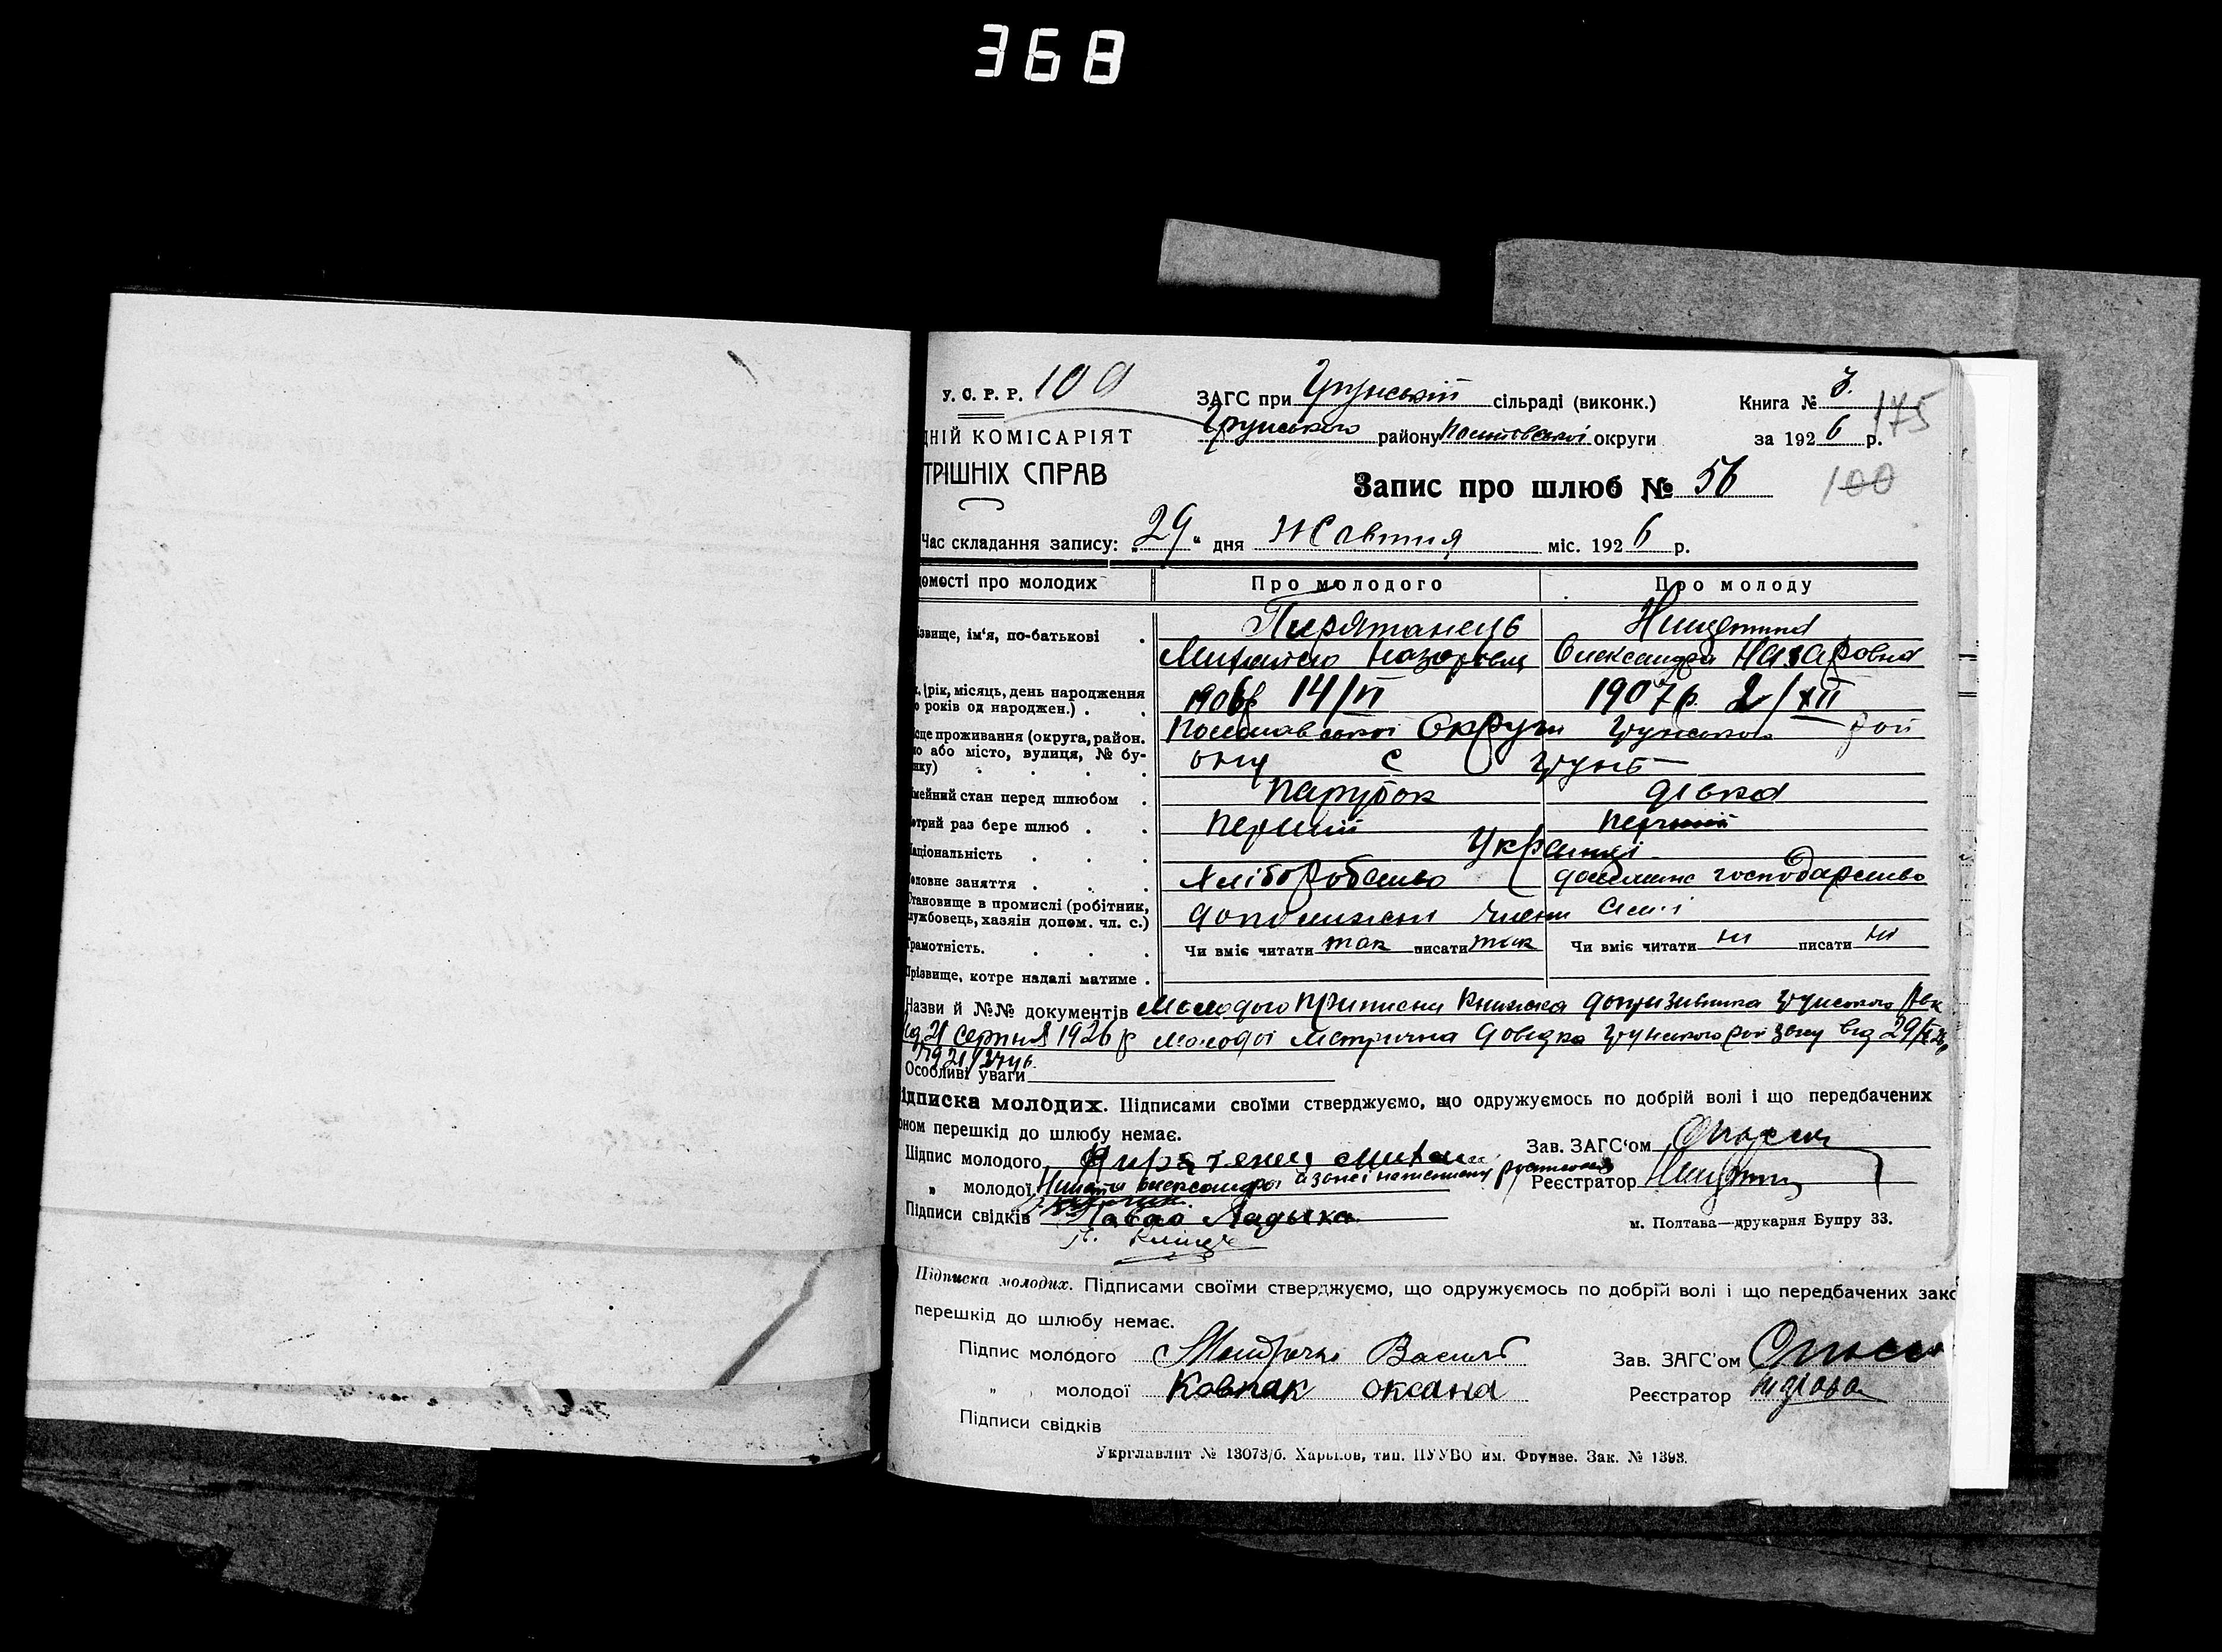 368
У. С. Р. Р. 100
ЗАГС при Грунській сільраді (виконк.)
Книга № 3.
175
ДНІЙ КОМІСАРІЯТ
Грунського району Полтавської округи
за 1926 р.
ТРІШНІХ СПРАВ
Запис про шлюб № 56
100
Час складання запису: „29" дня Жовтня міс. 1926 р.
домості про молодих
Про молодого
Про молоду
ізвище, ім'я, по-батькові
Пирятанець
Нищетна
Михайло Назарович
Олександра Назаровна
. (рік, місяць, день народження
о років од народжен.)
1906р 14/VI
1907р. 2/XII
сце проживання (округа, район.
ло або місто, вулиця, № бу-
нку)
Полтавської Округи Грунського рай
ону с Грунь
імейний стан перед шлюбом
парубок
дівка
отрий раз бере шлюб
перший
перший
Національність
Українці
оловне заняття
хліборобство
домашнє господарство
Становище в промислі (робітник,
лужбовець, хазяін допом. чл. с.)
допоміжні члени сімї
Грамотність.
Чи вміє читати так писати так
Чи вміє читати ні писати ні
Прізвище, котре надалі матиме
Назви й №№ документів Молодого приписна книжка допризивника Грунського РВК
від 21 серпня 1926 р Молодої метрична довідка Грунського рай загсу від 29/X
Особливі уваги
ідписка молодих. Підписами своїми стверджуємо, що одружуємось по добрій волі і що передбачених
оном перешкід до шлюбу немає.
Зав. ЗАГС'ом
Підпис молодого
„ молодої Олександра а за неї неписьмену росписався
Реєстратор
Підписи свідків Павло Ладыка
м. Полтава—друкарня Бупру 33.
Підписка молодих. Підписами своїми стверджуємо, що одружуємось по добрій волі і що передбачених зако
перешкід до шлюбу немає.
Підпис молодого Василь
Зав. ЗАГС'ом
„ молодої Ковпак Оксана
Реєстратор
Підписи свідків
Укрглавлит № 13073/б. Харьков, тип. ПУУВО им. Фрунзе. Зак. № 1393.